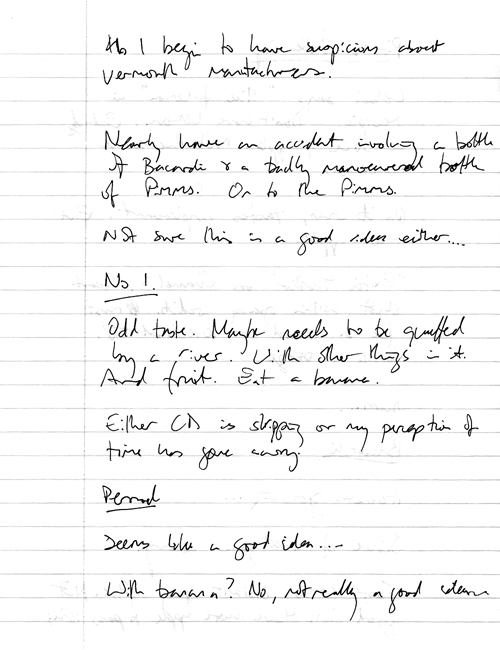 I begin to have suspicions about
Vermouth manufacturers.
Nearly have an accident involving a bottle
of Bacardi & a badly manoeuvered bottle
of Pimms. On to the Pimms.
Not sure this is a good idea either....
No 1.
Odd taste. Maybe needs to be quaffed
by a river. With other things in it.
And fruit. Eat a banana.
Either CD is skipping or my perception of
time has gone awry.
Pernod
Seems like a good idea...
With banana? No, not really a good idea